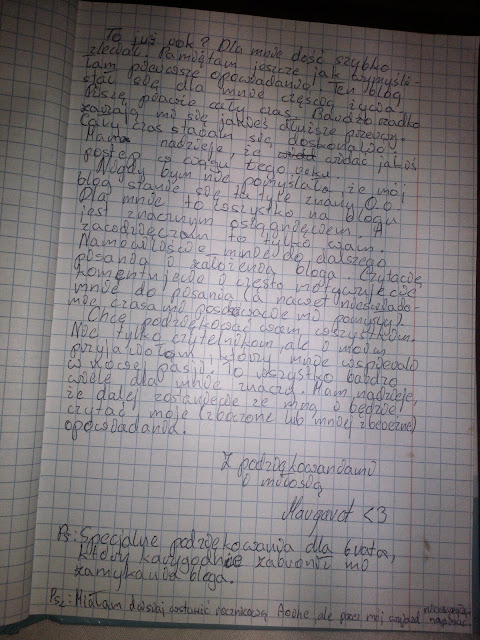 To już rok? Dla mnie dość szybko
zleciał. Pamiętam jeszcze jak wymyśli-
łam pierwsze opowiadanie. Ten blog
stał się dla mnie częścią życia
Piszę prawie cały czas. Bardzo rzadko
zdarzają mi się jakieś dłuższe przerwy.
Cały czas staram się doskonalić
Mam nadzieję że widać jakoś
postęp w ciągu tego roku.
Nigdy bym nie pomyślała że mój
blog stanie się na tyle znany O.o
Dla mnie to wszystko na blogu
jest znacznym osiągnięciem. A
zawdzięczam to tylko wam.
Namówiliście mnie do dalszego
pisania i założenia bloga. Czytacie,
komentujecie i często motywujecie
mnie do pisania (a nawet nieświado-
mie czasami podsuwacie mi pomysły).
Chcę podziękować wam wszystkim.
Nie tylko czytelnikom, ale i moim
przyjaciołom, którzy mnie wspierali
w mojej pasji. To wszystko bardzo
wiele dla mnie znaczy. Mam nadzieję,
że dalej zostaniecie ze mną i będzie
czytać moje (zboczone lub mniej zboczone)
opowiadania.
Z podziękowaniami
i miłością
Margaret <3
Ps: Specjalne podziękowania dla brata,
który karygodnie zabronił mi
zamykania bloga.
Ps2: Miałam dzisiaj wstawić rocznicową Aoihę, ale przez mój wyjazd napisać.